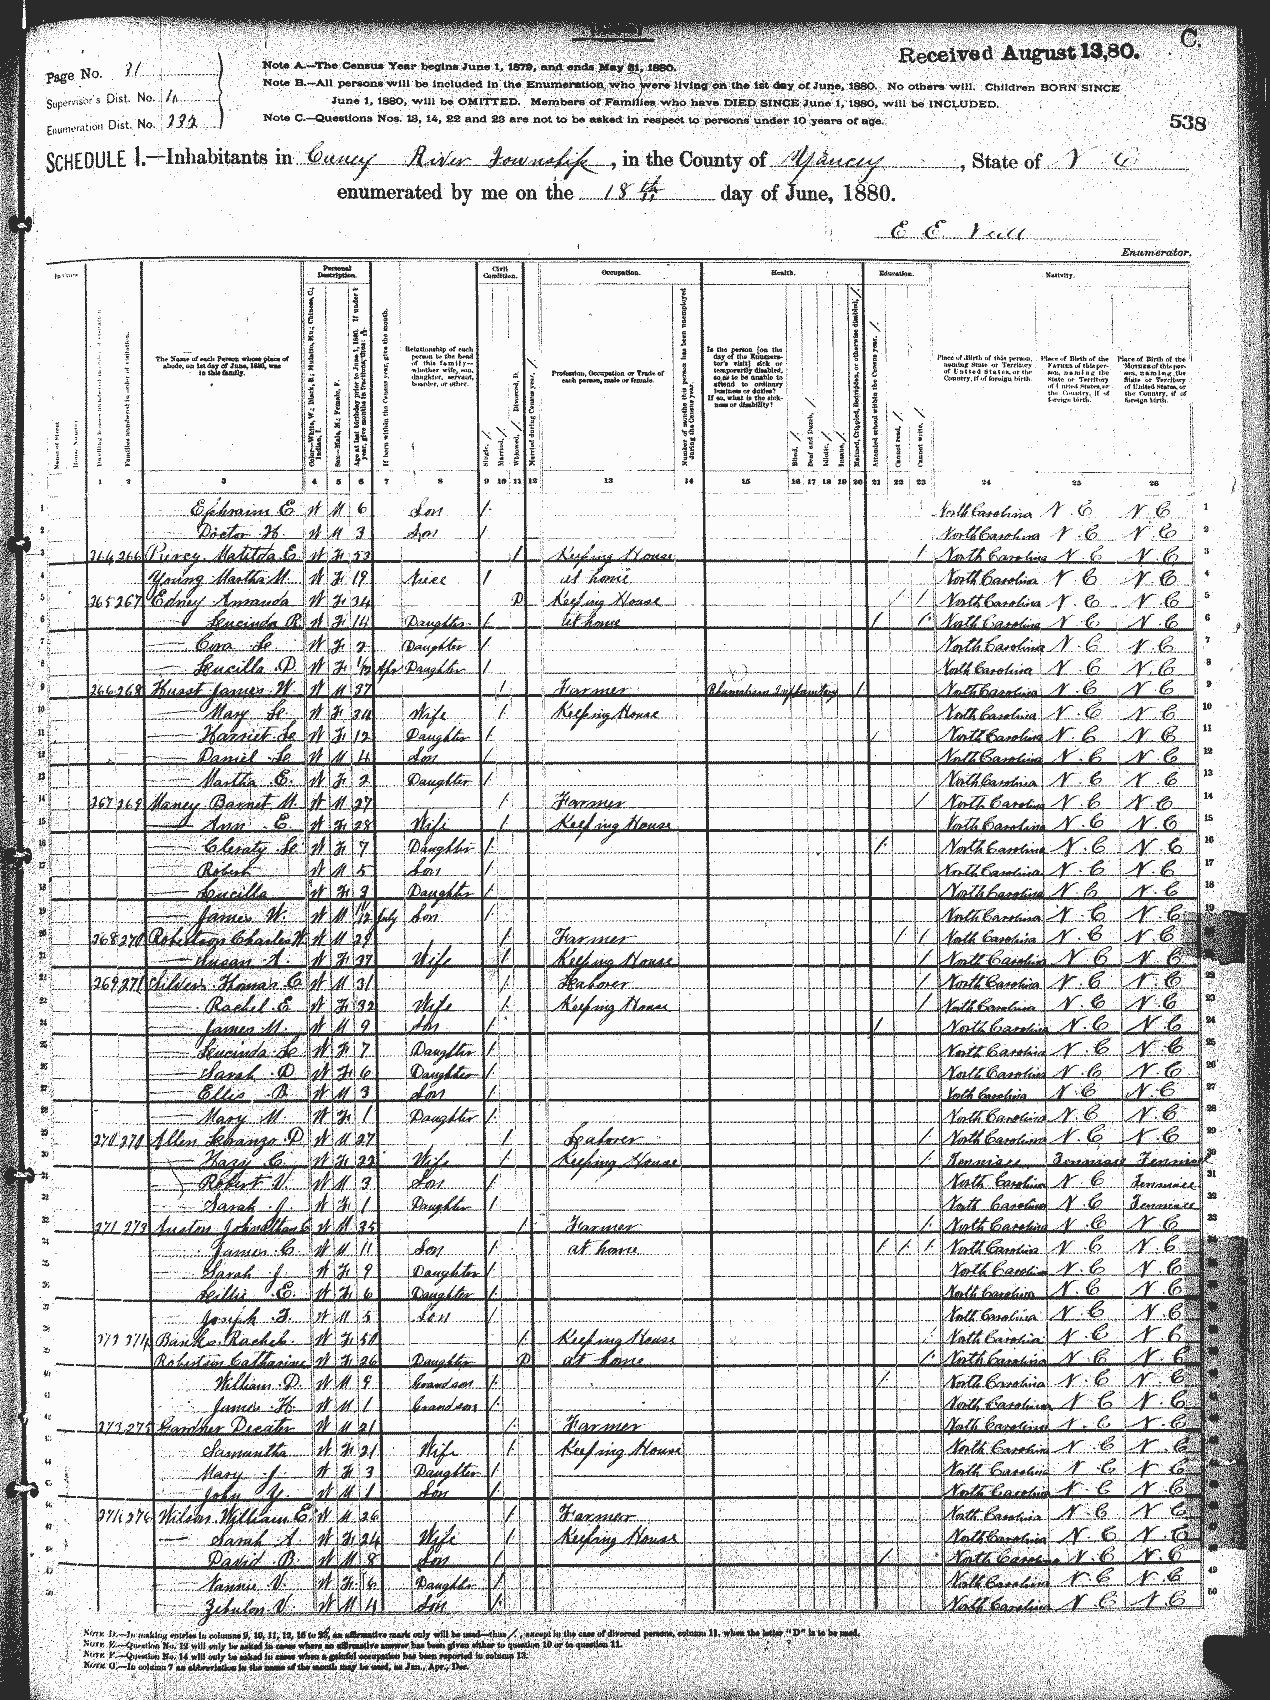 C.
Received August 13,80.
Page No. 31
Supervisor's Dist. No.
Enumeration Dist. No. 232
Note A.—The Census Year begins June 1, 1879, and ends May 31, 1880.
Note B.—All persons will be included in the Enumeration who were living on the 1st day of June, 1880. No others will. Children BORN SINCE
June 1, 1880, will be OMITTED. Members of Families who have DIED SINCE June 1, 1880, will be INCLUDED.
Note C.—Questions Nos. 13, 14, 22 and 23 are not to be asked in respect to persons under 10 years of age.
538
SCHEDULE 1.—Inhabitants in Caney River Township, in the County of Yancey, State of N C
enumerated by me on the 18th day of June, 1880.
E E
Enumerator.
Personal Description. Civil Condition. Occupation. Health. Education. Nativity.
The Name of each Person whose place of abode, on 1st day of June, 1880, was in this family.
Relationship of each person to the head of this family—whether wife, son, daughter, servant, boarder, or other.
Profession, Occupation or Trade of each person, male or female.
1 2 3 4 5 6 7 8 9 10 11 12 13 14 15 16 17 18 19 20 21 22 23 24 25 26
1 Ephraim E W M 6 Son / North Carolina N C N C
2 Doctor H. W M 3 Son / North Carolina N C N C
3 264 266 Matilda E. W F 53 / Keeping House / North Carolina N C N C
4 Young Martha M. W F 19 Niece / at home North Carolina N C N C
5 265 267 Edney Amanda W F 34 D Keeping House / / North Carolina N C N C
6 Lucinda R. W F 14 Daughter / at home / / North Carolina N C N C
7 Cora L W F 2 Daughter / North Carolina N C N C
8 Lucilla D W F 1/12 Apr Daughter / North Carolina N C N C
9 266 268 James W. W M 37 / Farmer / North Carolina N C N C
10 Mary L W F 34 Wife / Keeping House North Carolina N C N C
11 Harriet L W F 12 Daughter / / North Carolina N C N C
12 Daniel L W M 4 Son / North Carolina N C N C
13 Martha E. W F 2 Daughter / North Carolina N C N C
14 267 269 Maney Barnet M. W M 27 / Farmer / North Carolina N C N C
15 Ann E W F 28 Wife / Keeping House North Carolina N C N C
16 L W F 7 Daughter / / North Carolina N C N C
17 Robert W M 5 Son / North Carolina N C N C
18 Lucilla W F 3 Daughter / North Carolina N C N C
19 James W. W M July Son / North Carolina N C N C
20 268 270 Robertson Charles W W M 29 / Farmer / / North Carolina N C N C
21 Susan A. W F 37 Wife / Keeping House / North Carolina N C N C
22 269 271 Thomas C W M 31 / Laborer / North Carolina N C N C
23 Rachel E W F 32 Wife / Keeping House / North Carolina N C N C
24 James M. W M 9 Son / / North Carolina N C N C
25 Lucinda L W F 7 Daughter / North Carolina N C N C
26 Sarah D W F 6 Daughter / North Carolina N C N C
27 Ellis B. W M 3 Son / North Carolina N C N C
28 Mary M. W F 1 Daughter / North Carolina N C N C
29 270 Allen Loranzo D. W M 27 / Laborer / North Carolina N C N C
30 C. W F 22 Wife / Keeping House / Tennissee Tennissee Tennissee
31 Robert V. W M 3 Son / North Carolina N C Tennissee
32 Sarah J W F 1 Daughter / North Carolina N C Tennissee
33 271 273 W M 35 / Farmer / North Carolina N C N C
34 James C. W M 11 Son / at home / / / North Carolina N C N C
35 Sarah J W F 9 Daughter / North Carolina N C N C
36 Lillie E. W F 6 Daughter / North Carolina N C N C
37 Joseph F. W M 5 Son / North Carolina N C N C
38 272 274 Banks Rachel W F 50 / Keeping House / North Carolina N C N C
39 Robertson Catharine W F 26 Daughter D at home / North Carolina N C N C
40 William D. W M 9 Grandson / / North Carolina N C N C
41 James H. W M 1 Grandson / North Carolina N C N C
42 273 275 Gardner Decater W M 21 / Farmer North Carolina N C N C
43 Samantha W F 21 Wife / Keeping House North Carolina N C N C
44 Mary J W F 3 Daughter / North Carolina N C N C
45 John W M 1 Son / North Carolina N C N C
46 274 276 Wilson William E. W M 26 / Farmer North Carolina N C N C
47 Sarah A. W F 24 Wife / Keeping House North Carolina N C N C
48 David B. W M 8 Son / / North Carolina N C N C
49 Nannie V. W F 6 Daughter / North Carolina N C N C
50 Zebulon V W M 4 Son / North Carolina N C N C
Note D.—In making entries in columns 9, 10, 11, 12, 16 to 23, an affirmative mark only will be used—thus /, except in the case of divorced persons, column 11, when the letter "D" is to be used.
Note E.—Question No. 12 will only be asked in cases where an affirmative answer has been given either to question 10 or to question 11.
Note F.—Question No. 14 will only be asked in cases when a gainful occupation has been reported in column 13.
Note G.—In column 7 an abbreviation in the name of the month may be used, as Jan., Apr., Dec.